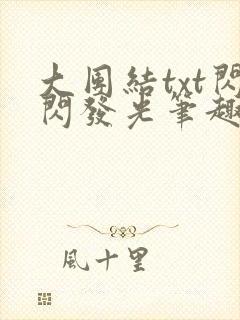 大團結txt閃
閃發光筆趣
風十里